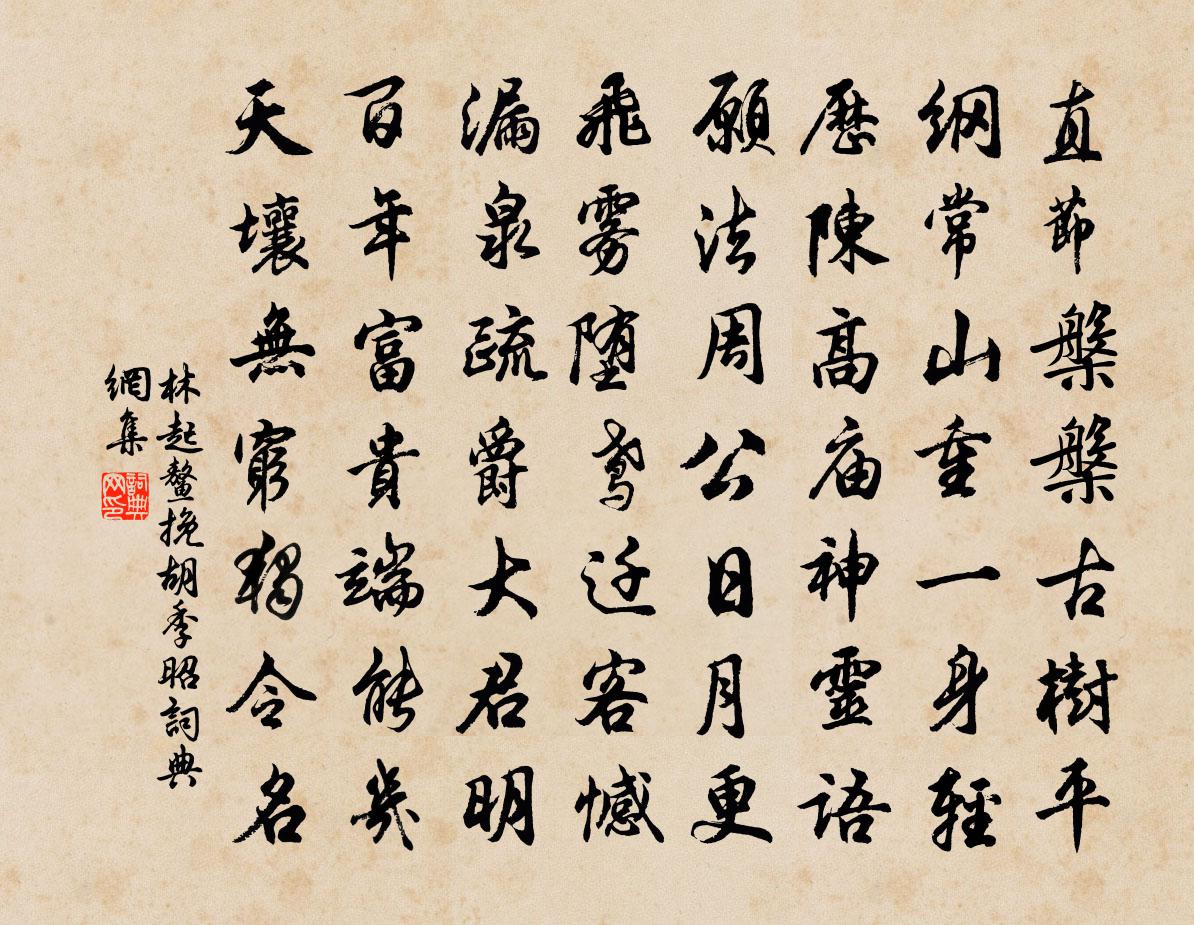 直節槃槃古樹平
綱常山重一身輕
歷陳高庙神靈語
願法周公日月更
飛雾堕鸢迁客憾
漏泉疏爵大君明
百年富貴端能幾
天壤無窮獨令名
林起鼇挽胡季昭詞典
網集
詞典
网印